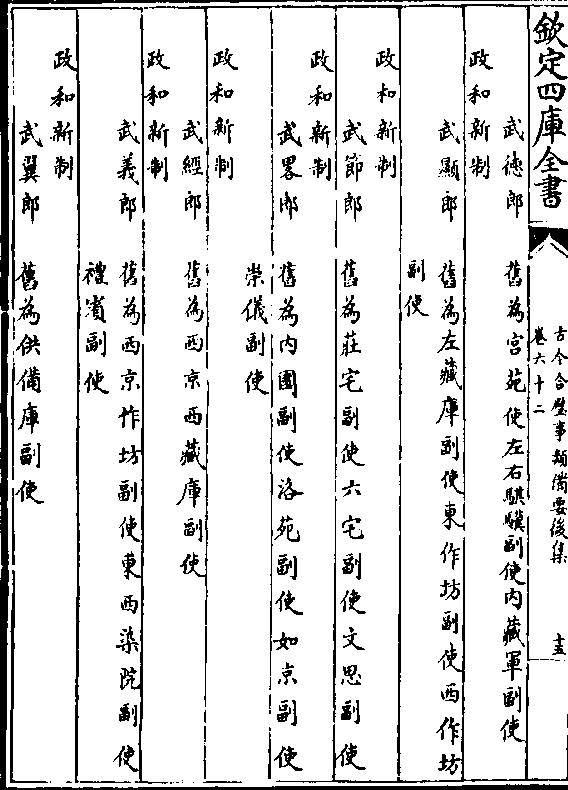 欽定四庫全書
古今合璧事類備要後集
卷六十二
十五
武德郎 舊為宫苑使左右騏驥副使内藏軍副使
政和新制
武顯郎 舊為左藏庫副使東作坊副使西作坊
副使
政和新制
武節郎 舊為莊宅副使六宅副使文思副使
政和新制
武畧郎 舊為内園副使洛苑副使如京副使
崇儀副使
政和新制
武經郎 舊為西京西藏庫副使
政和新制
武義郎 舊為西京作坊副使東西染院副使
禮賓副使
政和新制
武翼郎 舊為供備庫副使